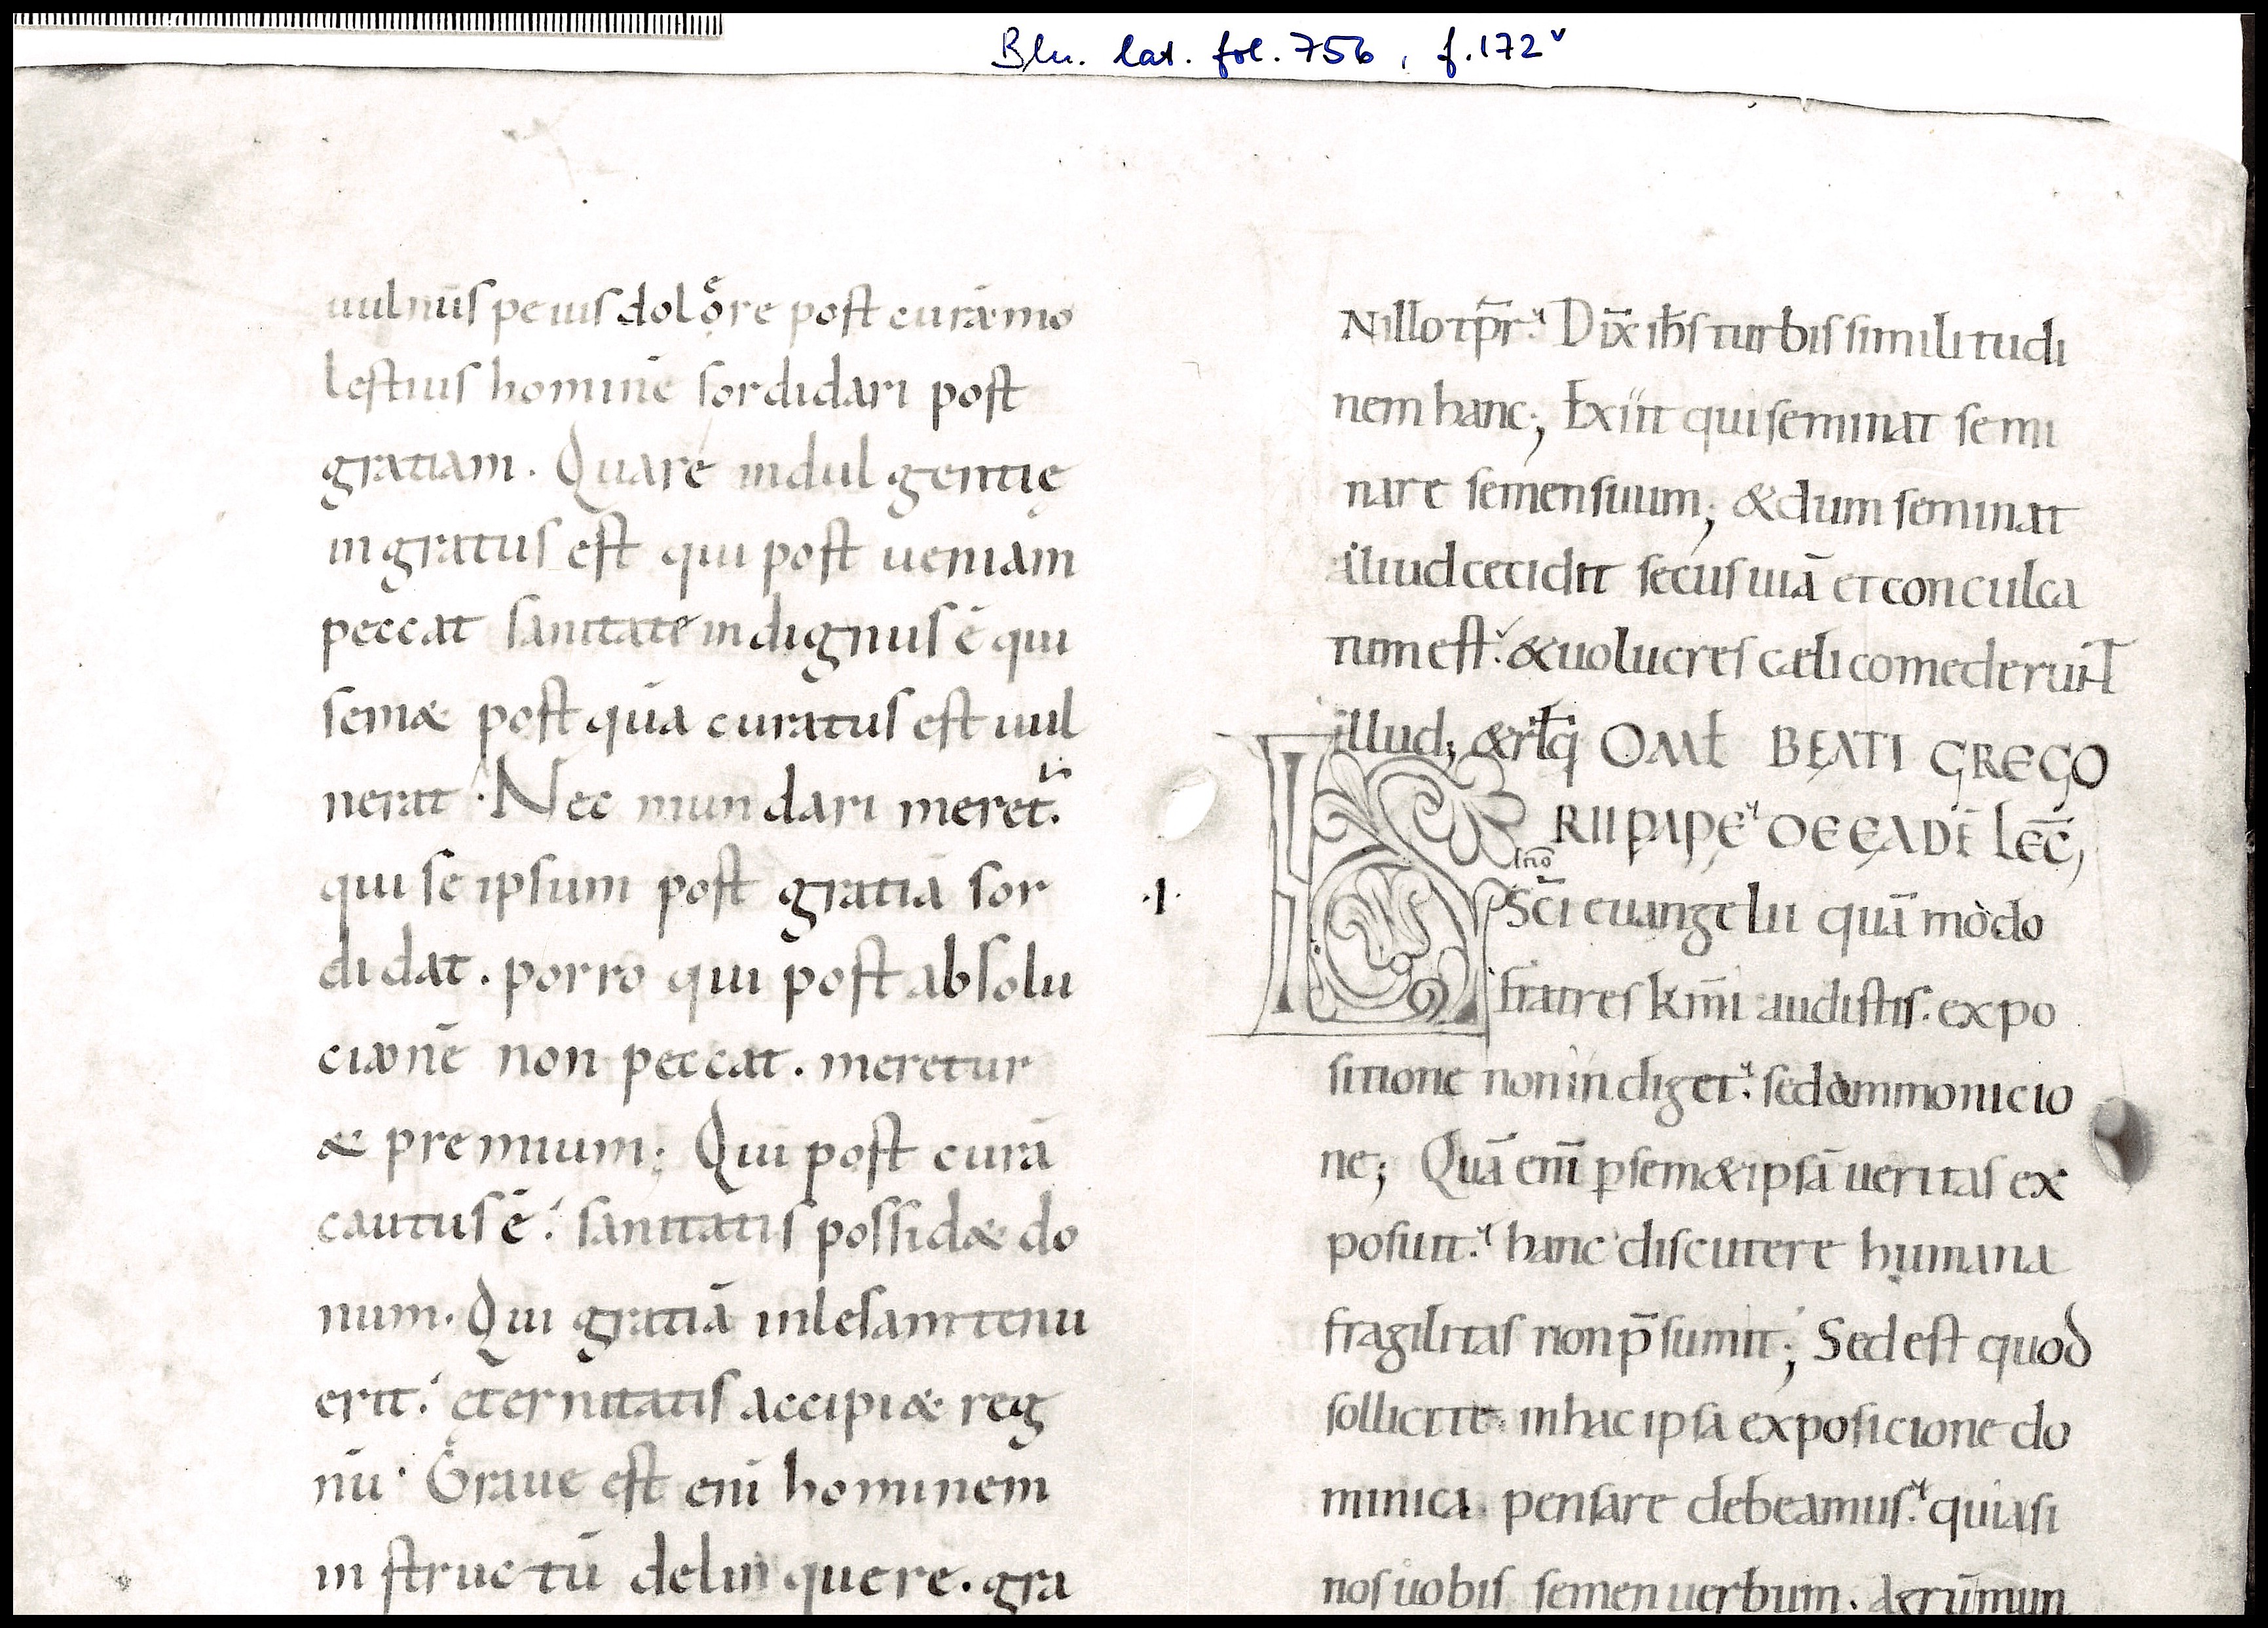 Bln. lat. fol. 756, f. 172v
uulnus peius dolore post curā mo
lestius hominē sordidari post
gratiam. Quare indulgentię
ingratus est qui post ueniam
peccat sanitate indignus ē qui
sem& post quā curatus est uul
nerat. Nec mundari meret.
qui se ipsum post gratiā sor
didat. porro qui post absolu
cionē non peccat. meretur
& premium; Qui post curā
cautus ē. sanitatis possid& do
num. Qui gratiā inlesam tenu
erit. ęternitatis accipi& reg
nū. Graue est enī hominem
instructū delinquere. gra
N illo tp̄r. Dix̄ ih̄s turbis similitudi
nem hanc; Exiit qui seminat semi
nare semen suum; & dum seminat
aliud cecidit secus uiā et conculca
tum est. & uolucres cæli comederunt
illud; & rl̄q OML BEATI GREGO
RII PAPE DE EADĒ LEC̄,
Lc̄io
·I·
Sc̄i euangelii quā modo
fratres km̄i audistis. expo
sitione non indiget. sed ammonicio
ne; Quā enī p sem& ipsā ueritas ex
posuit. hanc discutere humana
fragilitas non p̄sumit; Sed est quod
sollicite in hac ipsa exposicione do
minica pensare debeamus. quia si
nos uobis semen uerbum. Agrum mun